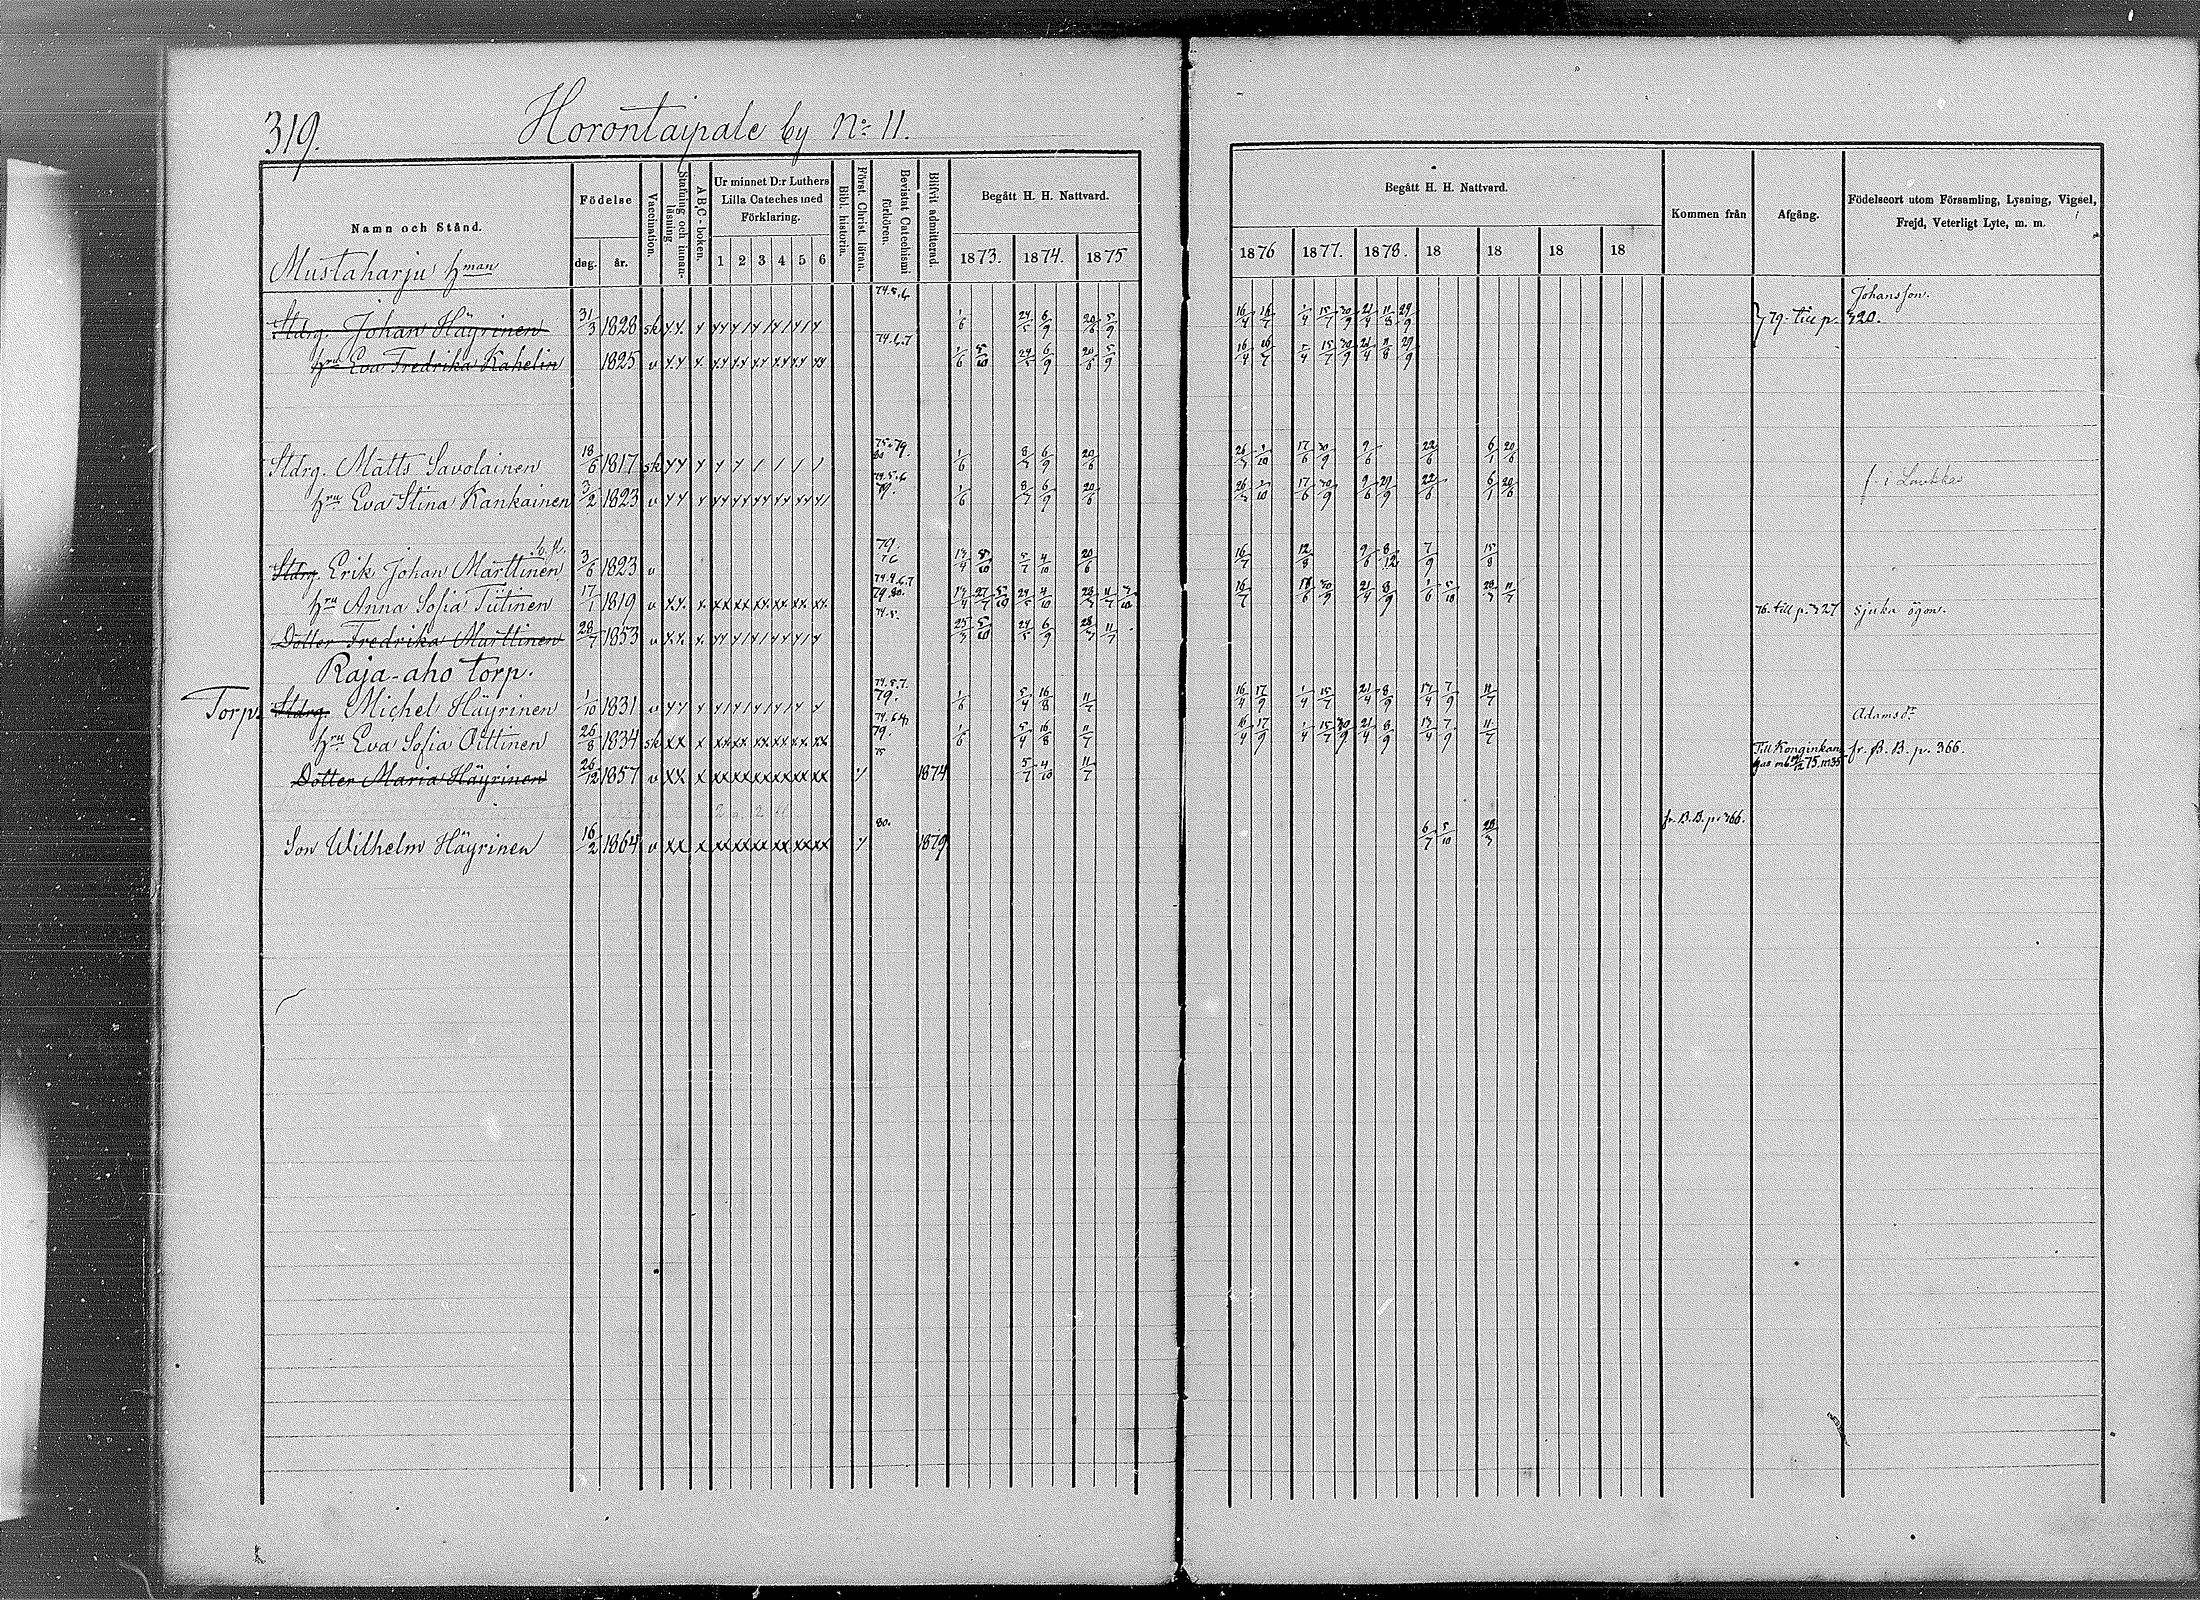 319. Horontaipale by No 11.
Namn och Stånd.
Födelse
dag. år.
Vaccination.
Stafning och innan-läsning
ABC-boken.
Ur minnet D:r Luthers Lilla Cateches med Förklaring.
1 2 3 4 5 6
Bibl. historia.
Först. Christ. läran.
Bevistat Catechismi förhören.
Blifvit admitterad.
Begått H. H. Nattvard.
1873. 1874. 1875
Begått H. H. Nattvard.
1876 1877. 1878. 18 18 18 18
Kommen från
Afgång.
Födelseort utom Församling, Lysning, Vigsel, Frejd, Veterligt Lyte, m. m.
Mustaharju hman
Stdrg. Johan Häyrinen 31/3 1828 sk 74.5.6 1/6 24/5 6/9 20/6 5/9 16/4 16/7 1/4 15/7 30/9 21/4 11/8 29/9 79. till p. 320. Johansson.
hru Eva Fredrika Kahelin 1825 v 74.6.7 1/6 5/10 24/5 6/9 20/6 5/9 16/4 16/7 1/4 15/7 30/9 21/4 11/8 29/9
Stdrg. Matts Savolainen 18/6 1817 sk 75.79. 80 1/6 8/3 6/9 20/6 26/3 1/10 17/6 30/9 9/6 22/6 6/1 20/6
hru Eva Stina Kankainen 3/2 1823 v 74.5.6 79. 1/6 8/3 6/9 20/6 26/3 1/10 17/6 30/9 9/6 29/9 22/6 6/1 20/6 f. i Laukka
Stdrg. Erik Johan Marttinen 3/6 1823 v 79. 13/4 5/10 5/7 4/10 20/6 16/7 12/8 9/6 8/12 7/9 15/8
hru Anna Sofia Tiitinen 17/1 1819 v 74.4.6.7 79.80. 13/4 27/7 5/10 24/5 4/10 28/3 11/7 3/10 16/7 30/9 21/4 8/9 1/6 5/10 28/3 11/7 76. till p. 327 sjuka ögon.
Dotter Fredrika Marttinen 28/7 1853 v 74.5. 25/3 5/10 24/5 6/9 28/3 11/7
Raja-aho torp.
Torp. Stdrg. Michel Häyrinen 1/10 1831 v 74.5.7. 79. 1/6 5/4 16/8 11/7 16/4 17/9 1/4 15/7 21/4 8/9 13/4 7/9 11/7
hru Eva Sofia Oittinen 26/8 1834 sk 79. 1/6 5/4 16/8 11/7 16/4 17/9 1/4 15/7 30/9 21/4 8/9 13/4 7/9 11/7 Adamsdr
Dotter Maria Häyrinen 26/12 1857 v 75 1874 5/7 4/10 11/7 Till Konginkangas fr. B. B. p. 366.
Son Wilhelm Häyrinen 16/2 1864 v 80. 1879 6/7 5/10 28/3 fr. B. B. p. 366.